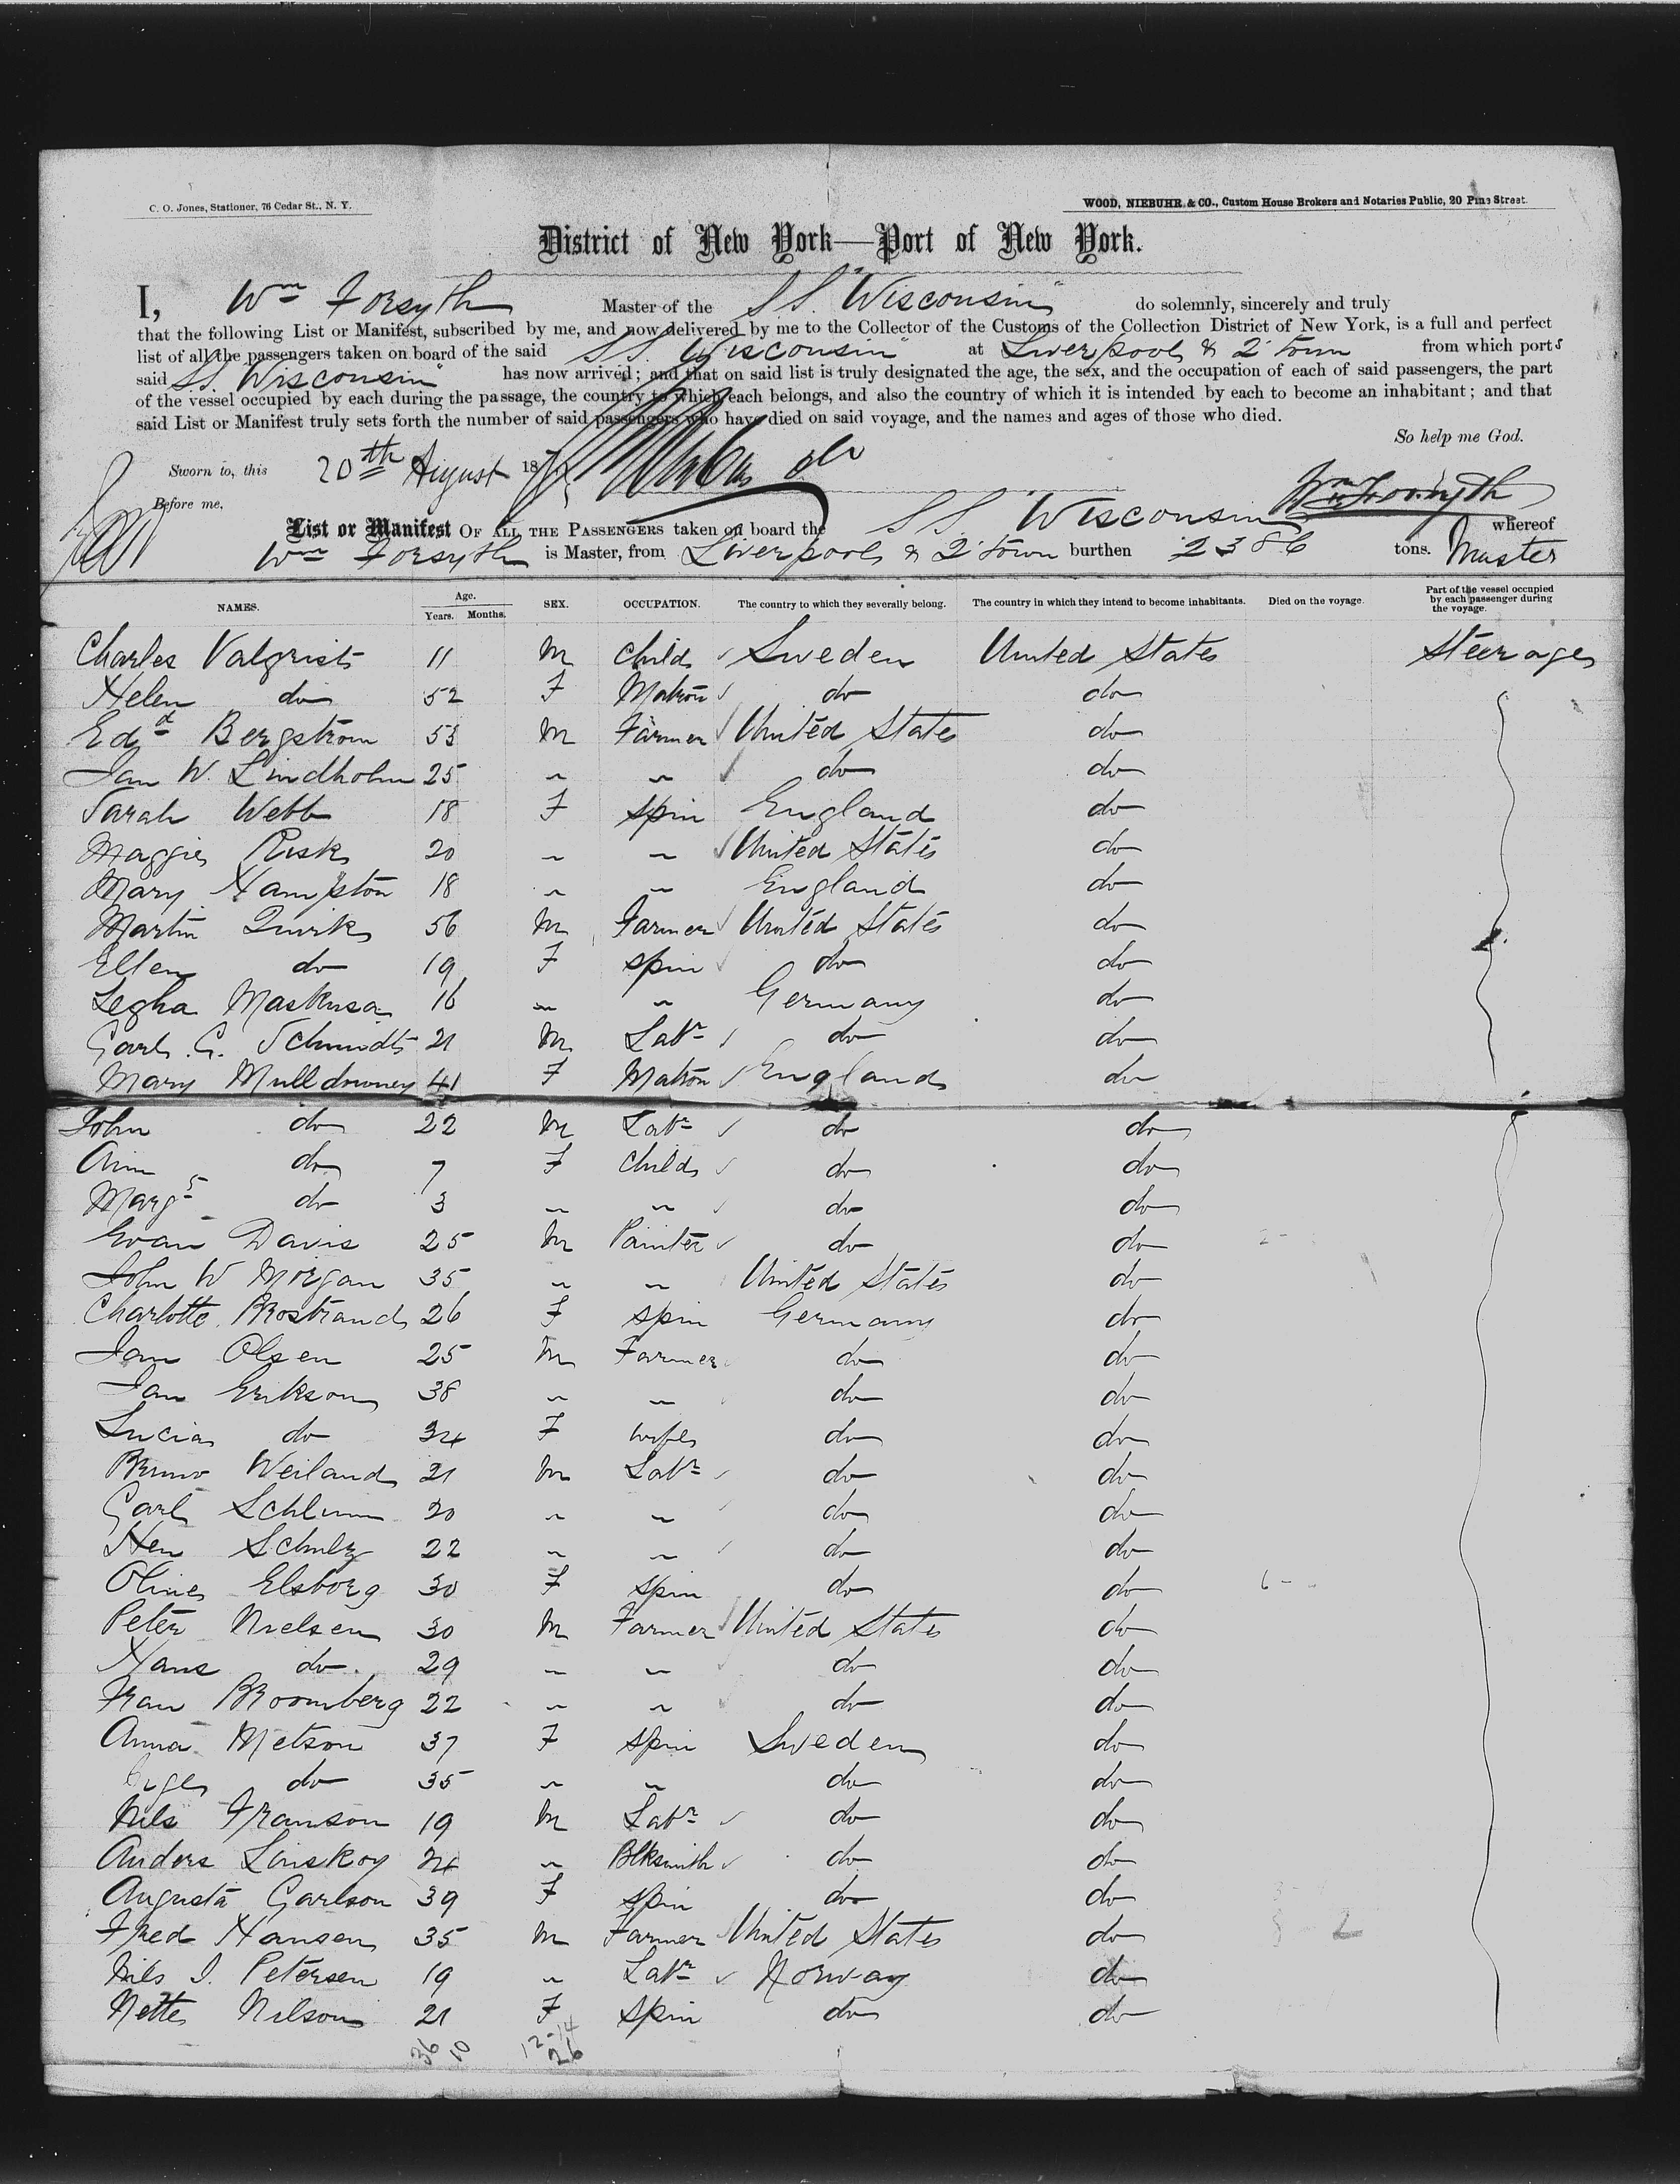 C. O. Jones, Stationer, 76 Cedar St., N. Y.
WOOD, NIEBUHR & CO., Custom House Brokers and Notaries Public, 20 Pine Street.
District of New York—Port of New York.
I, Wm Forsyth Master of the SS. "Wisconsin" do solemnly, sincerely and truly
that the following List or Manifest, subscribed by me, and now delivered by me to the Collector of the Customs of the Collection District of New York, is a full and perfect
list of all the passengers taken on board of the said SS. Wisconsin" at Liverpool & Q town from which ports
said SS. Wisconsin" has now arrived; and that on said list is truly designated the age, the sex, and the occupation of each of said passengers, the part
of the vessel occupied by each during the passage, the country to which each belongs, and also the country of which it is intended by each to become an inhabitant; and that
said List or Manifest truly sets forth the number of said passengers who have died on said voyage, and the names and ages of those who died.
So help me God.
Sworn to, this 20th August 187
Before me, Wm Forsyth
List or Manifest OF ALL THE PASSENGERS taken on board the SS. Wisconsin whereof
Wm Forsyth is Master, from Liverpool & Q town burthen 2386 tons. Master
NAMES. Age. Years. Months. SEX. OCCUPATION. The country to which they severally belong. The country in which they intend to become inhabitants. Died on the voyage. Part of the vessel occupied by each passenger during the voyage.
Charles Valqrist 11 M Child Sweden United States Steerage
Helen do 52 F Matron do do
Edd Bergstrom 53 M Farmer United States do
Jan W. Lindholm 25 " " do do
Sarah Webb 18 F Spin England do
Maggie Risk 20 " " United States do
Mary Hampston 18 " " England do
Martin Quirk 56 M Farmer United States do
Ellen do 19 F Spin do do
Legha Maskusa 16 " " Germany do
Carl G. Schmidt 21 M Labr do do
Mary Mulldowney 41 F Matron England do
John do 22 M Labr do do
Ann do 7 F Child do do
Margt do 3 " " do do
Evan Davis 25 M Painter do do
John W Morgan 35 " " United States do
Charlotte Brostrand 26 F Spin Germany do
Jan Olsen 25 M Farmer do do
Jan Erikson 38 " " do do
Lucia do 34 F Wife do do
Bruno Weiland 21 M Labr do do
Carl Schlumm 20 " " do do
Hen Schulz 22 " " do do
Oline Elsborg 30 F Spin do do
Peter Nielsen 30 M Farmer United States do
Hans do 29 " " do do
Fran Bromberg 22 " " do do
Anna Metson 37 F Spin Sweden do
do 35 " " do do
Nils Franson 19 M Labr do do
Anders Linskog 24 " Blksmith do do
Augusta Carlson 39 F Spin do do
Fred Hansen 35 M Farmer United States do
Nils J. Petersen 19 " Labr Norway do
Nette Nilson 21 F Spin do do
36 10 12-14
26